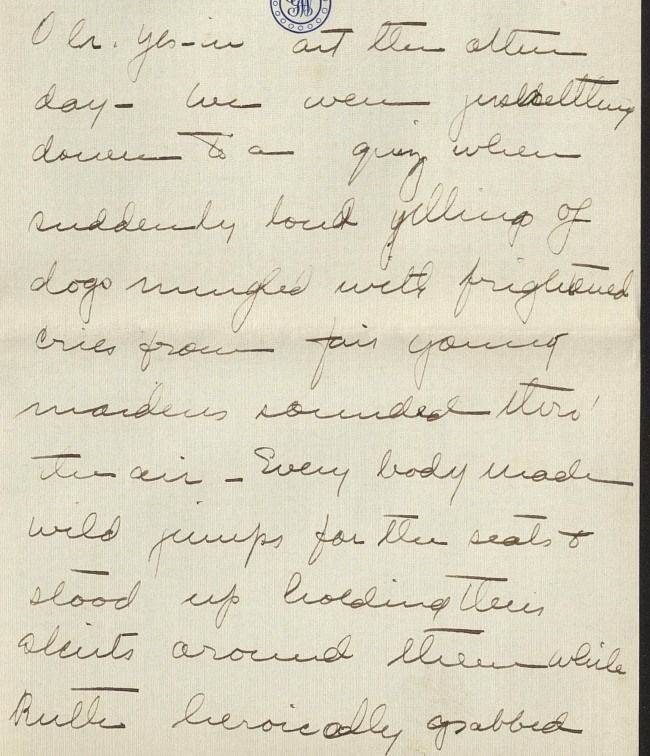 Oh. Yes-in art the other
day- we were just settling
down to a quiz when
suddenly loud yelling of
dogs mingled with frightened
cries from fair young
maidens sounded thro'
the air - Every body made
wild jumps for the seats &
stood up holding their
skirts around them while
Ruth heroically grabbed